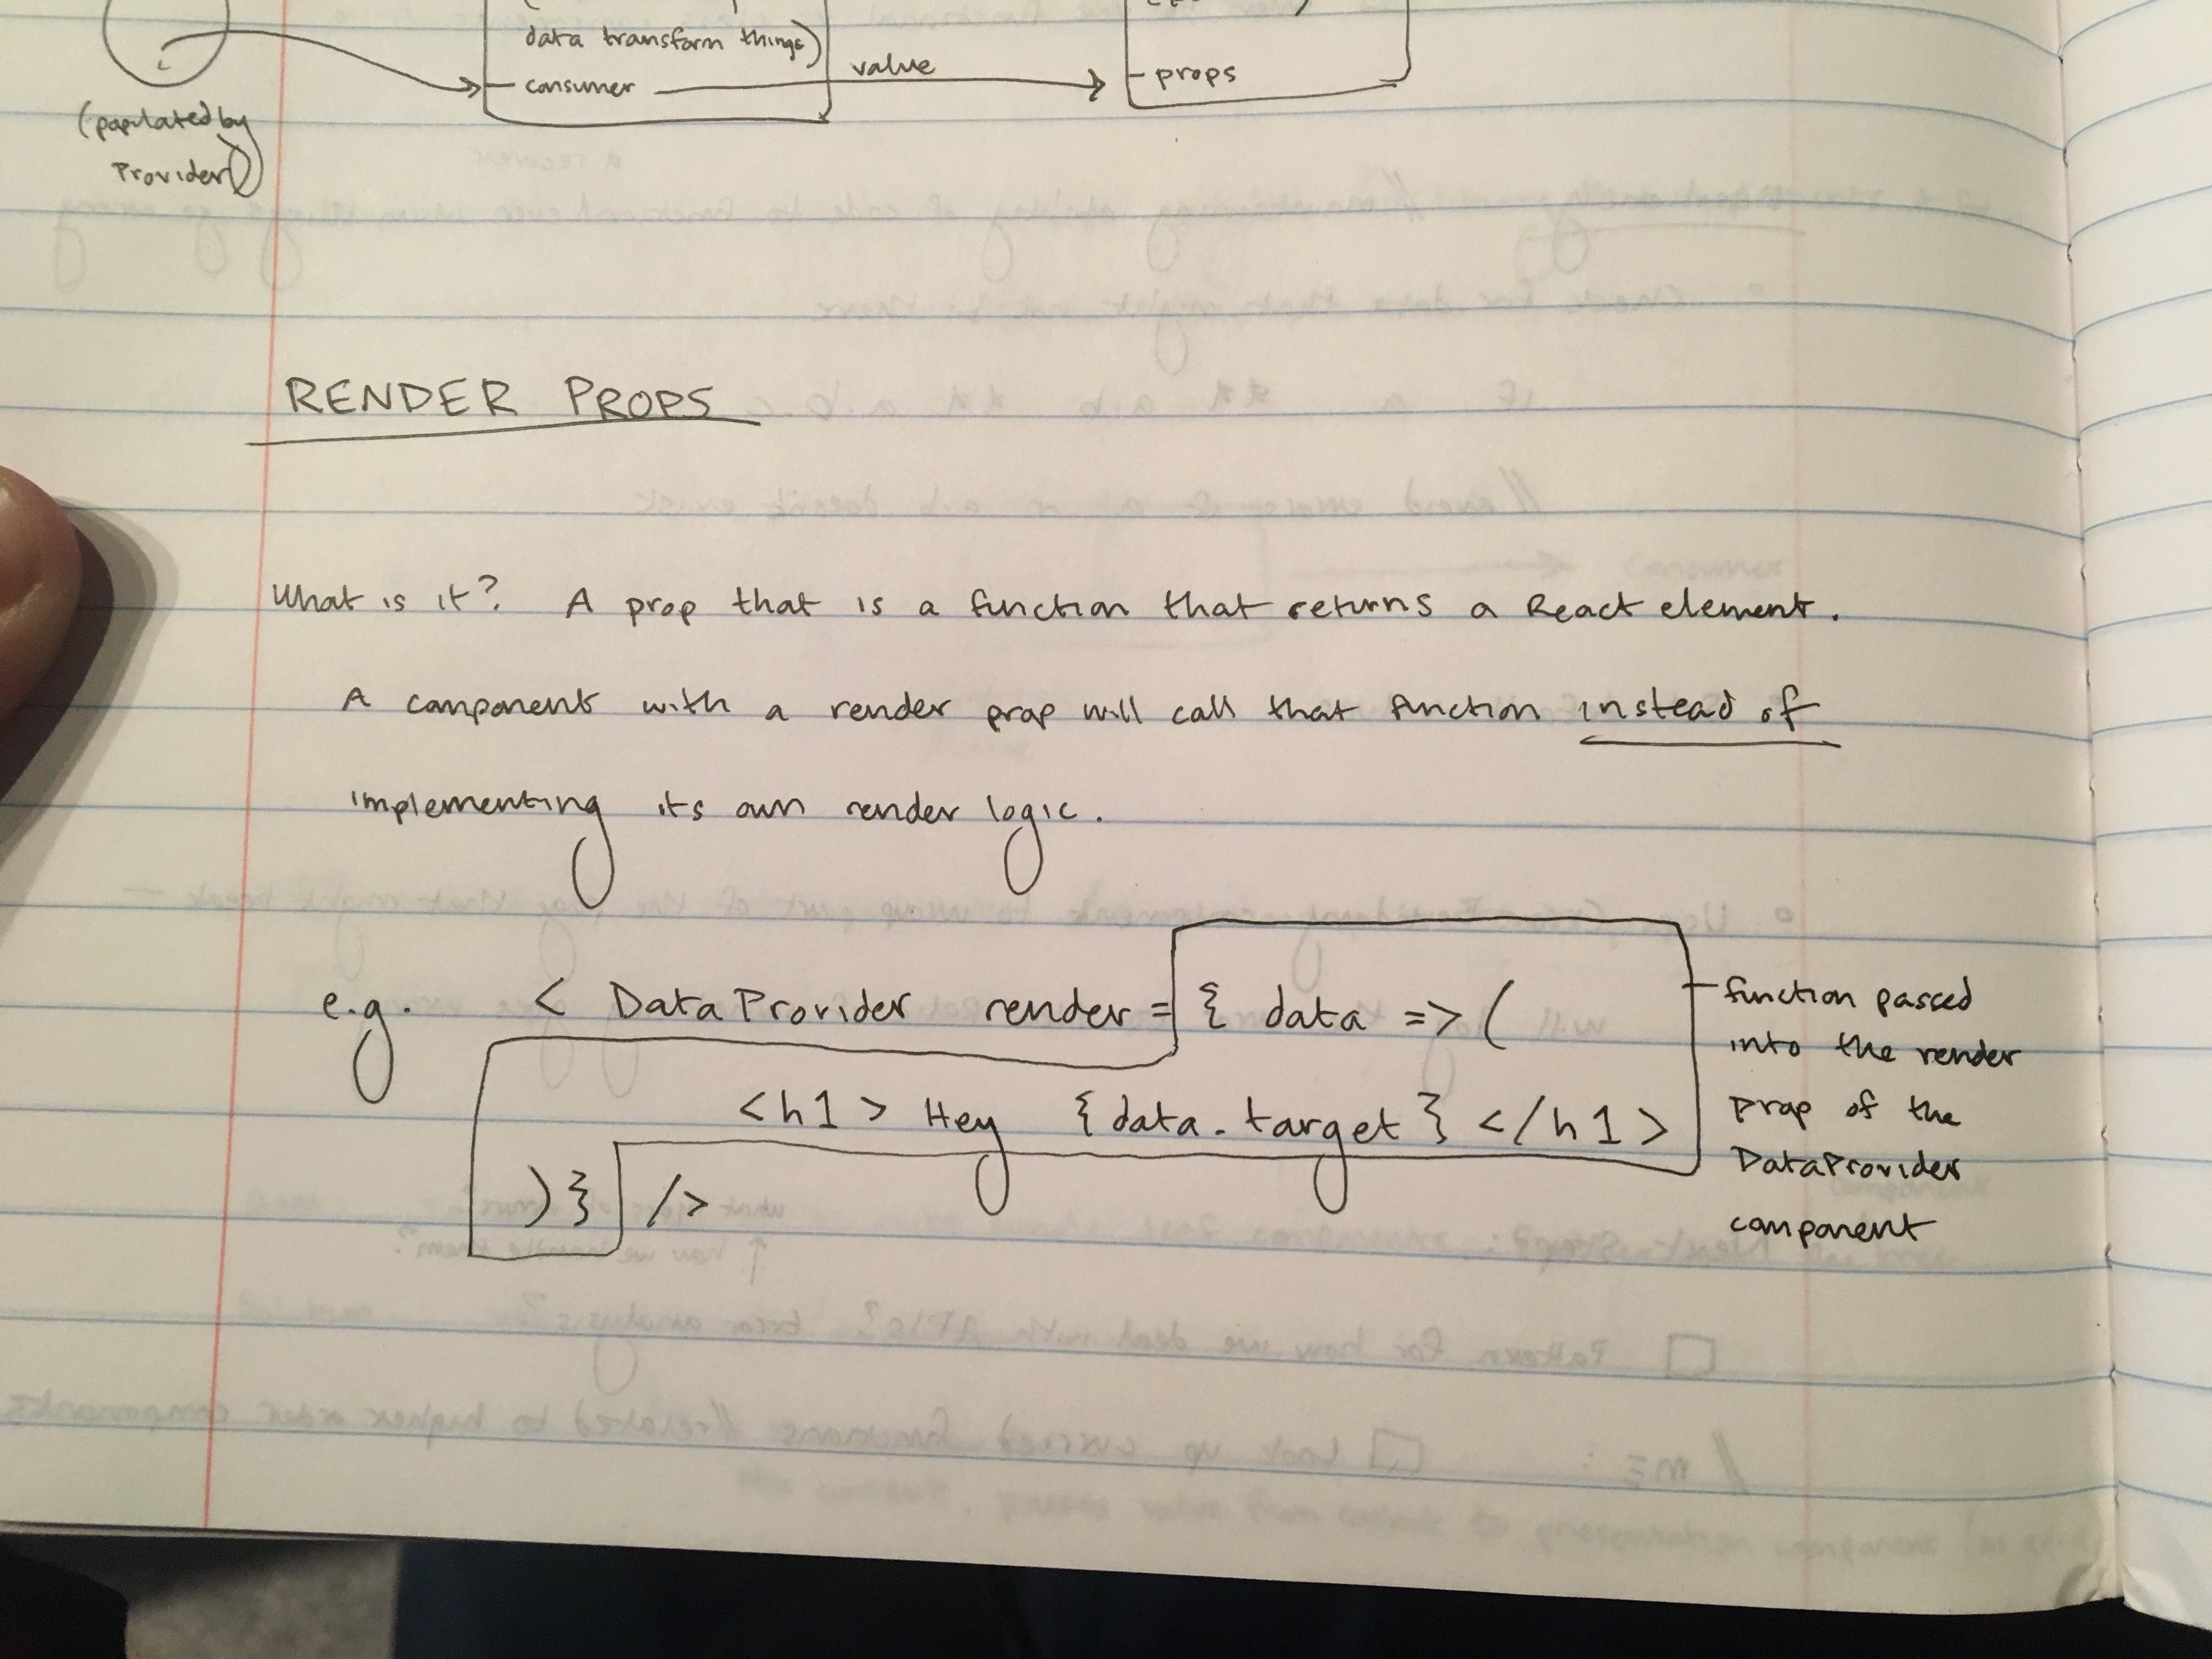 data transform things)
consumer
value
props
(populated by
Provider)
RENDER PROPS
What is it? A prop that is a function that returns a React element.
A component with a render prop will call that function instead of
implementing its own render logic.
e.g. < DataProvider render = { data => (
<h1> Hey {data.target} </h1>
)} />
function passed
into the render
prop of the
DataProvider
component